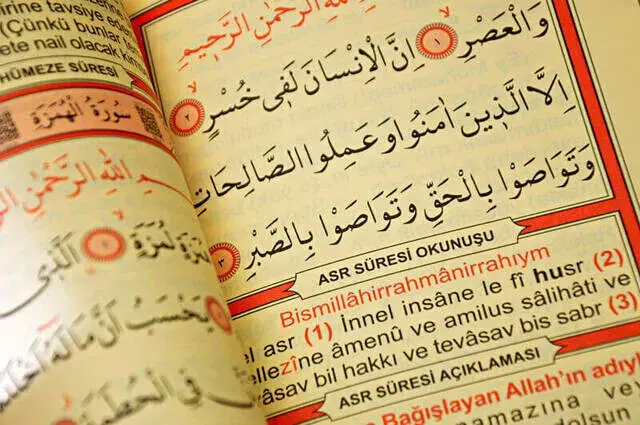 irine tavsiye ed
(Çünkü bunlar
ete nail olacak kim
HÜMEZE SÛRESİ
سُورَةُ الْهُمَزَةِ
اللهِ الرَّحْمٰنِ
لُمَزَةٍ ١ اَلَّذٖى
يَحْسَبُ اَنَّ مَالَهُٓ
فِى الْحُطَمَةِ
اللهِ الرَّحْمٰنِ الرَّحٖيمِ
وَالْعَصْرِ ١ اِنَّ الْاِنْسَانَ لَفٖى خُسْرٍ ٢
اِلَّا الَّذٖينَ اٰمَنُوا وَعَمِلُوا الصَّالِحَاتِ
وَتَوَاصَوْا بِالْحَقِّ وَتَوَاصَوْا بِالصَّبْرِ ٣
ASR SÛRESİ OKUNUŞU
Bismillâhirrahmânirrahıym
el asr (1) İnnel insâne le fî husr (2)
ellezîne âmenû ve amilus sâlihâti ve
vâsav bil hakkı ve tevâsav bis sabr (3)
ASR SÛRESİ AÇIKLAMASI
Bağışlayan Allah'ın adıy
namazına ve
dolsun